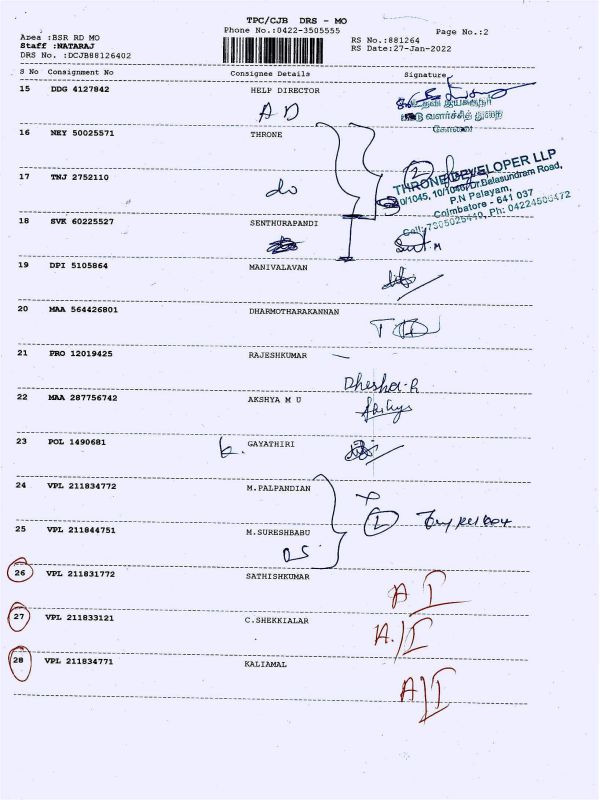 TPC/CJB DRS - MO
Phone No.:0422-3505555
Page No.:2
Area :BSR RD MO
Staff :NATARAJ
DRS No. :DCJB88126402
RS No.:881264
RS Date:27-Jan-2022
S No Consignment No Consignee Details Signature
15 DDG 4127842 HELP DIRECTOR
A D
16 NEY 50025571 THRONE
2
17 TNJ 2752110
do
THRONE DEVELOPER LLP
P.N Palayam,
Coimbatore - 641 037
18 SVK 60225527 SENTHURAPANDI
19 DPI 5105864 MANIVALAVAN
20 MAA 564426801 DHARMOTHARAKANNAN
21 PRO 12019425 RAJESHKUMAR
22 MAA 287756742 AKSHYA M U
23 POL 1490681 GAYATHIRI
24 VPL 211834772 M.PALPANDIAN
25 VPL 211844751 M.SURESHBABU
26 VPL 211831772 SATHISHKUMAR
A I
27 VPL 211833121 C.SHEKKIALAR
A/I
28 VPL 211834771 KALIAMAL
A/I